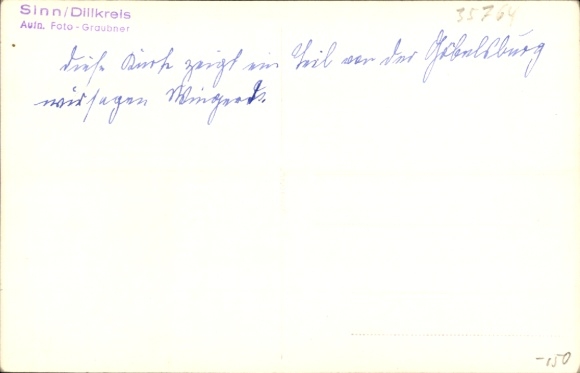 Sinn/Dillkreis
Aufn. Foto-Graubner
35764
diese Karte zeigt ein Teil von der Göbelsburg
wir sagen Wingert.
-150